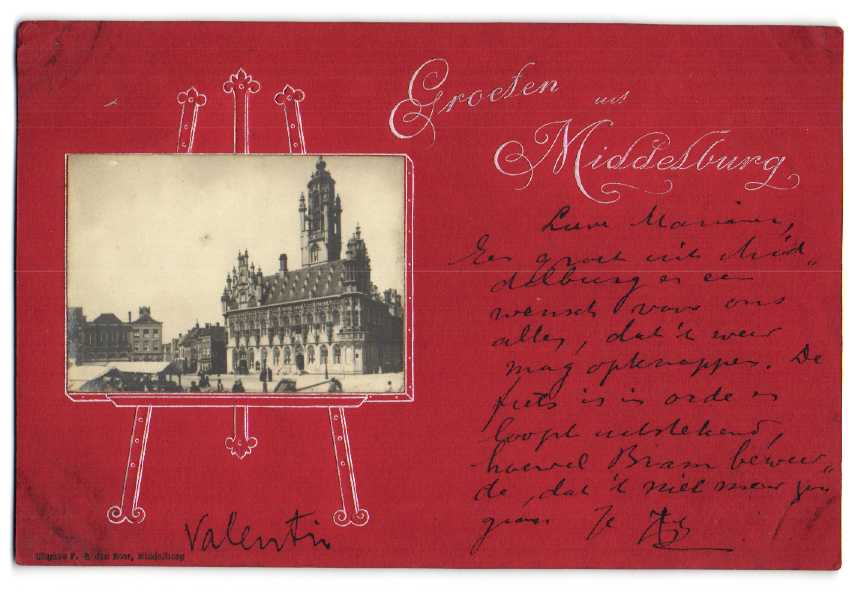 Groeten uit
Middelburg
Lieve Marianne,
Een groet uit Mid„
delburg en een
wensch voor ons
alles, dat 't weer
mag opknappen. De
fiets is in orde en
loopt uitstekend,
hoewel Bram beweer„
de, dat 't niet meer zou
gaan. Je
Valentin
Uitgave F. B. den Boer, Middelburg